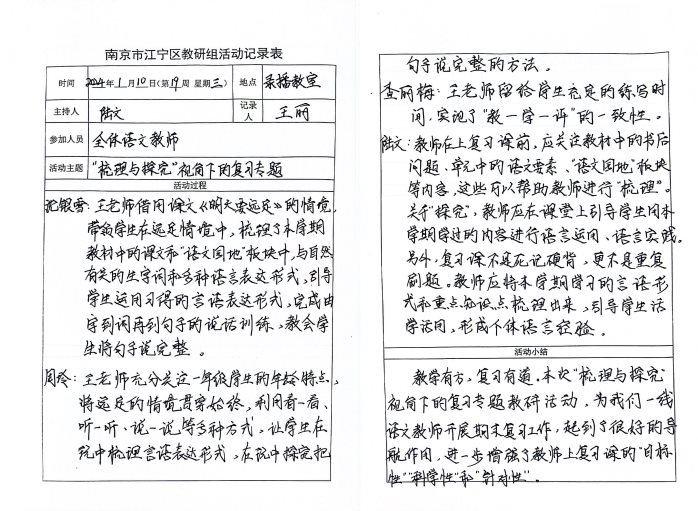 南京市江宁区教研组活动记录表
时间 2024年1月10日(第19周 星期三) 地点 录播教室
主持人 陆文 记录人 王丽
参加人员 全体语文教师
活动主题 “梳理与探究”视角下的复习专题
活动过程
沈银雪：王老师借用课文《明天要远足》的情境，
带领学生在远足情境中，梳理了本学期
教材中的课文和“语文园地”板块中，与自然
有关的生字词和多种语言表达形式，引导
学生运用习得的言语表达形式，完成由
字到词再到句子的说话训练，教会学
生将句子说完整。
周玲：王老师充分关注一年级学生的年龄特点，
将远足的情境贯穿始终，利用看一看、
听一听、说一说等多种方式，让学生在
玩中梳理言语表达形式，在玩中探究把
句子说完整的方法。
查丽梅：王老师留给学生充足的练写时
间，实现了“教—学—评”的一致性。
陆文：教师在上复习课前，应关注教材中的书后
问题、单元中的语文要素、“语文园地”板块
等内容，这些可以帮助教师进行“梳理”。
关于“探究”，教师应在课堂上引导学生用本
学期学过的内容进行语言运用、语言实践。
另外，复习课不是死记硬背，更不是重复
刷题。教师应将本学期学习的言语形
式和重点知识点梳理出来，引导学生活
学活用，形成个体语言经验。
活动小结
教学有方，复习有道。本次“梳理与探究”
视角下的复习专题教研活动，为我们一线
语文教师开展期末复习工作，起到了很好的导
航作用，进一步增强了教师上复习课的“目标
性”“科学性”和“针对性”。